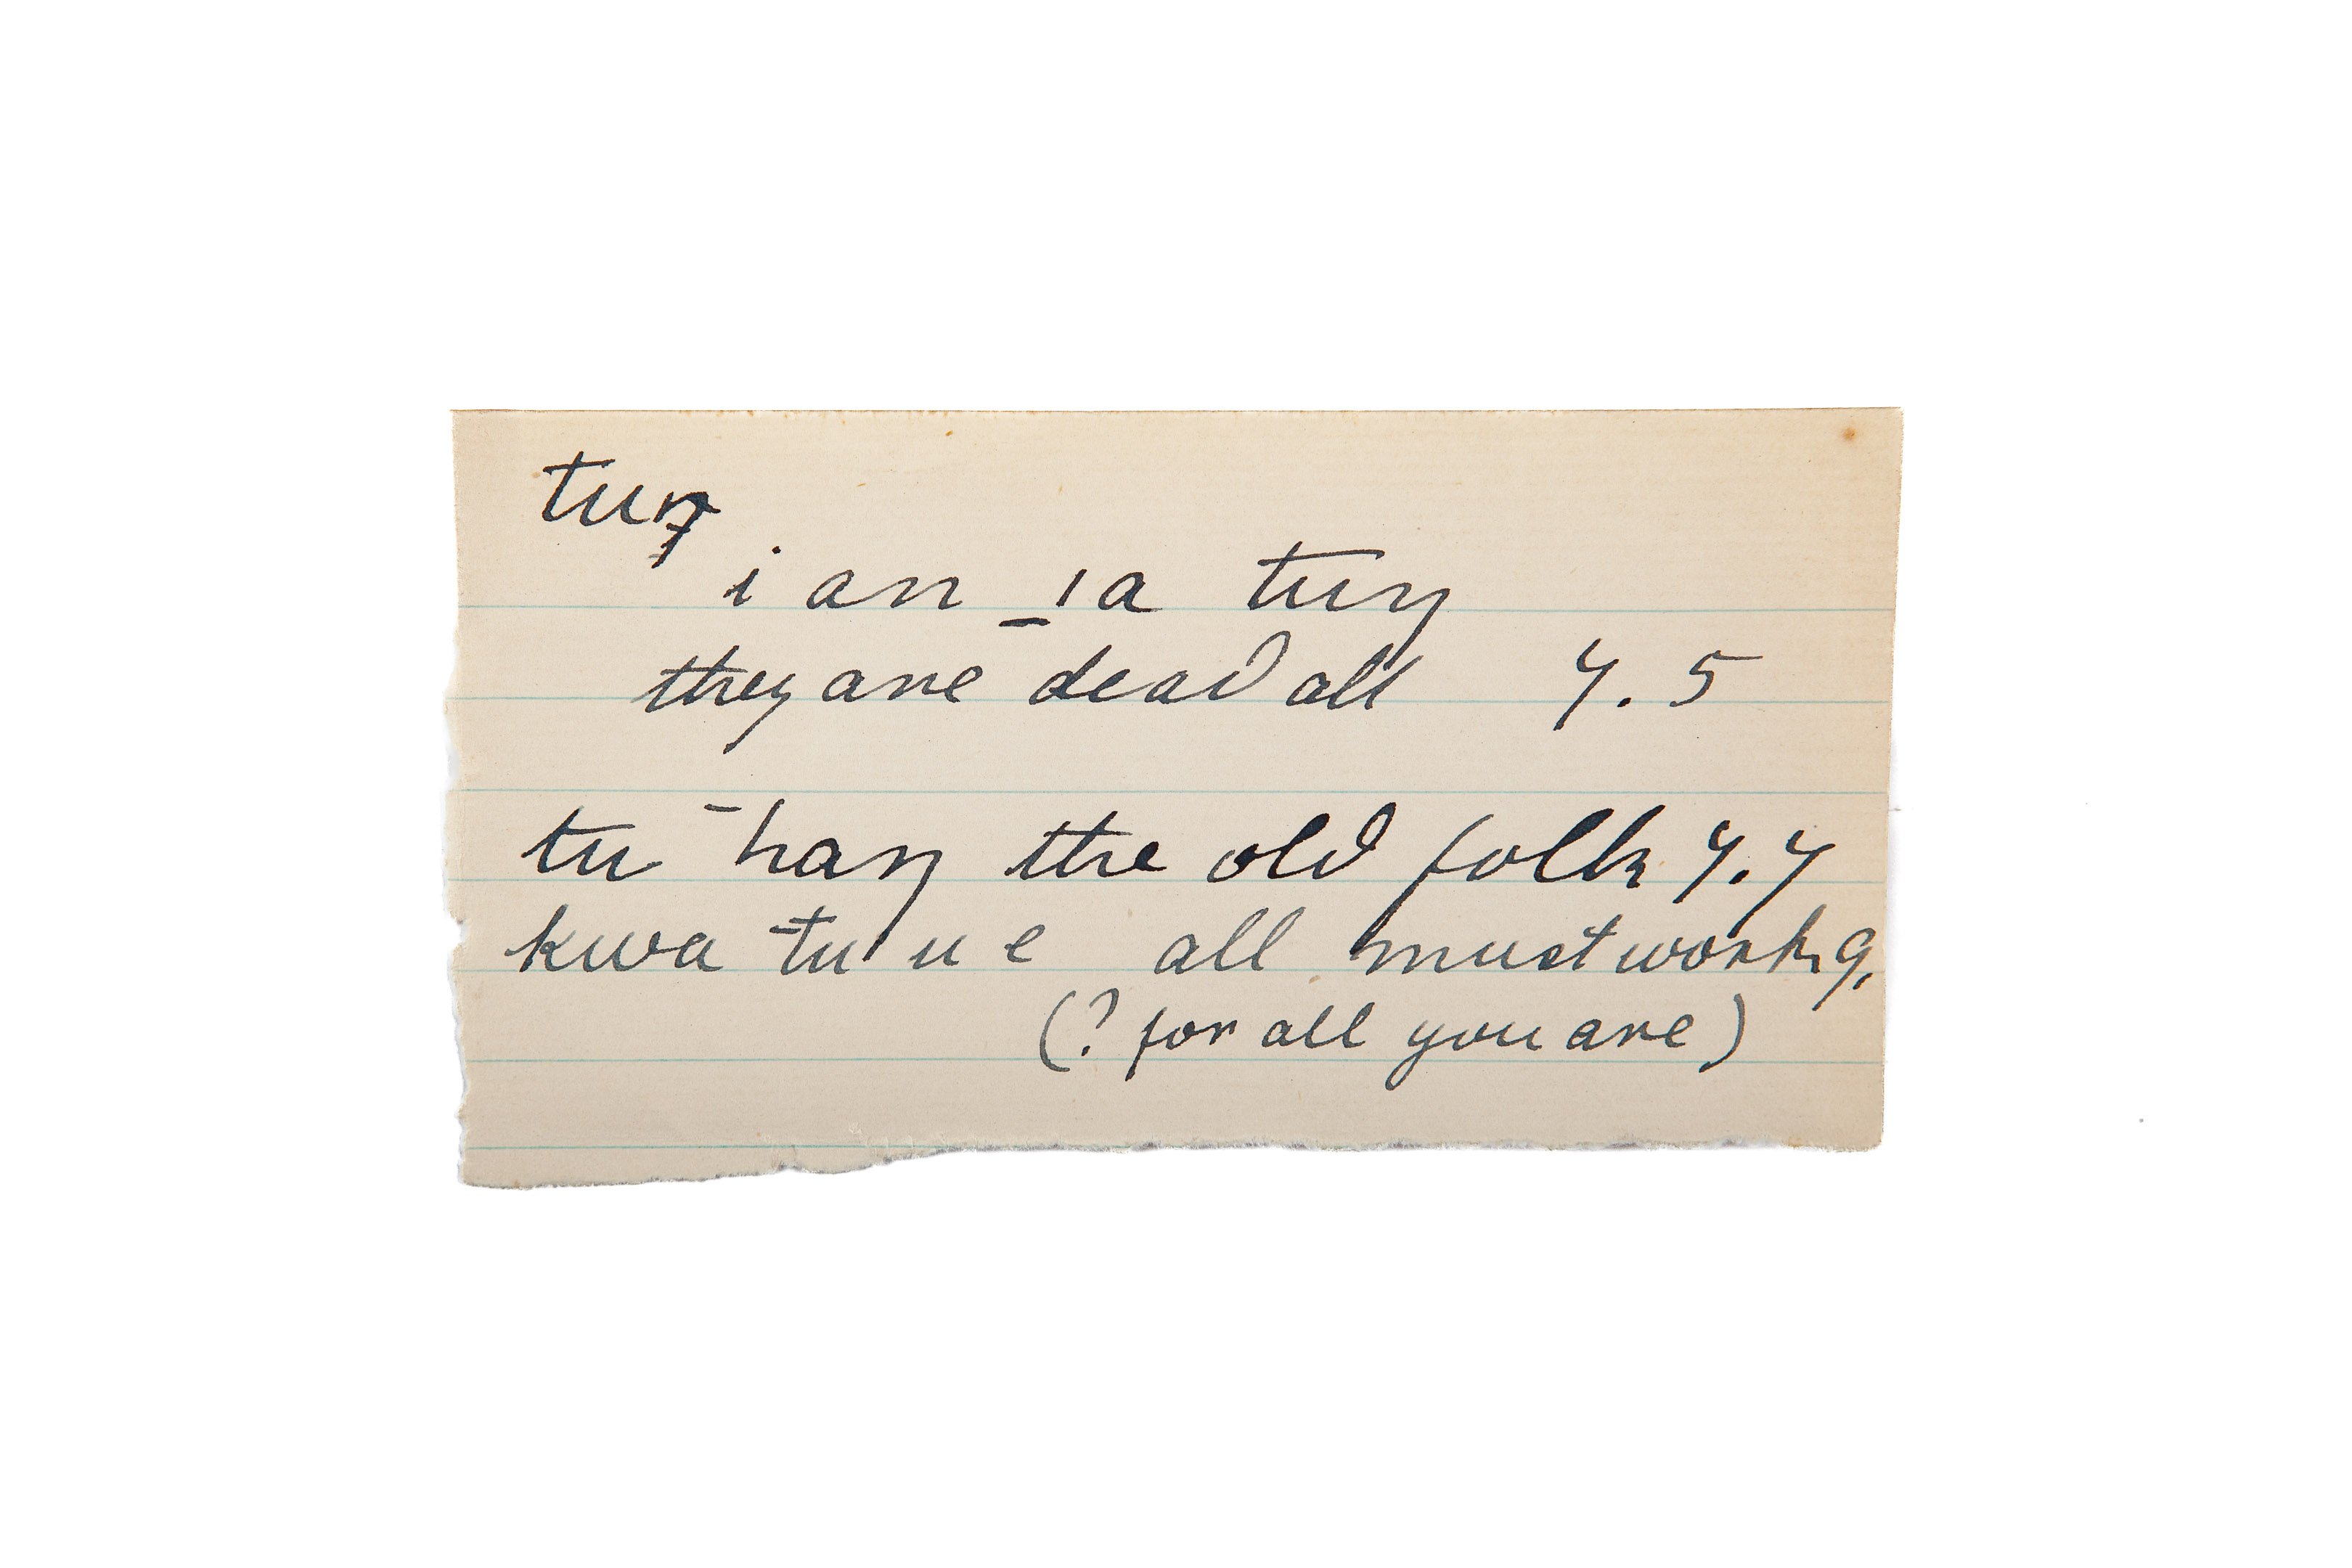 tuŋ
i an _ıa tuŋ
they are dead all 4.5
tu ¯haŋ the old folk 4.4
kwa ¯tu ' u e all must work 9.
(? for all you are)